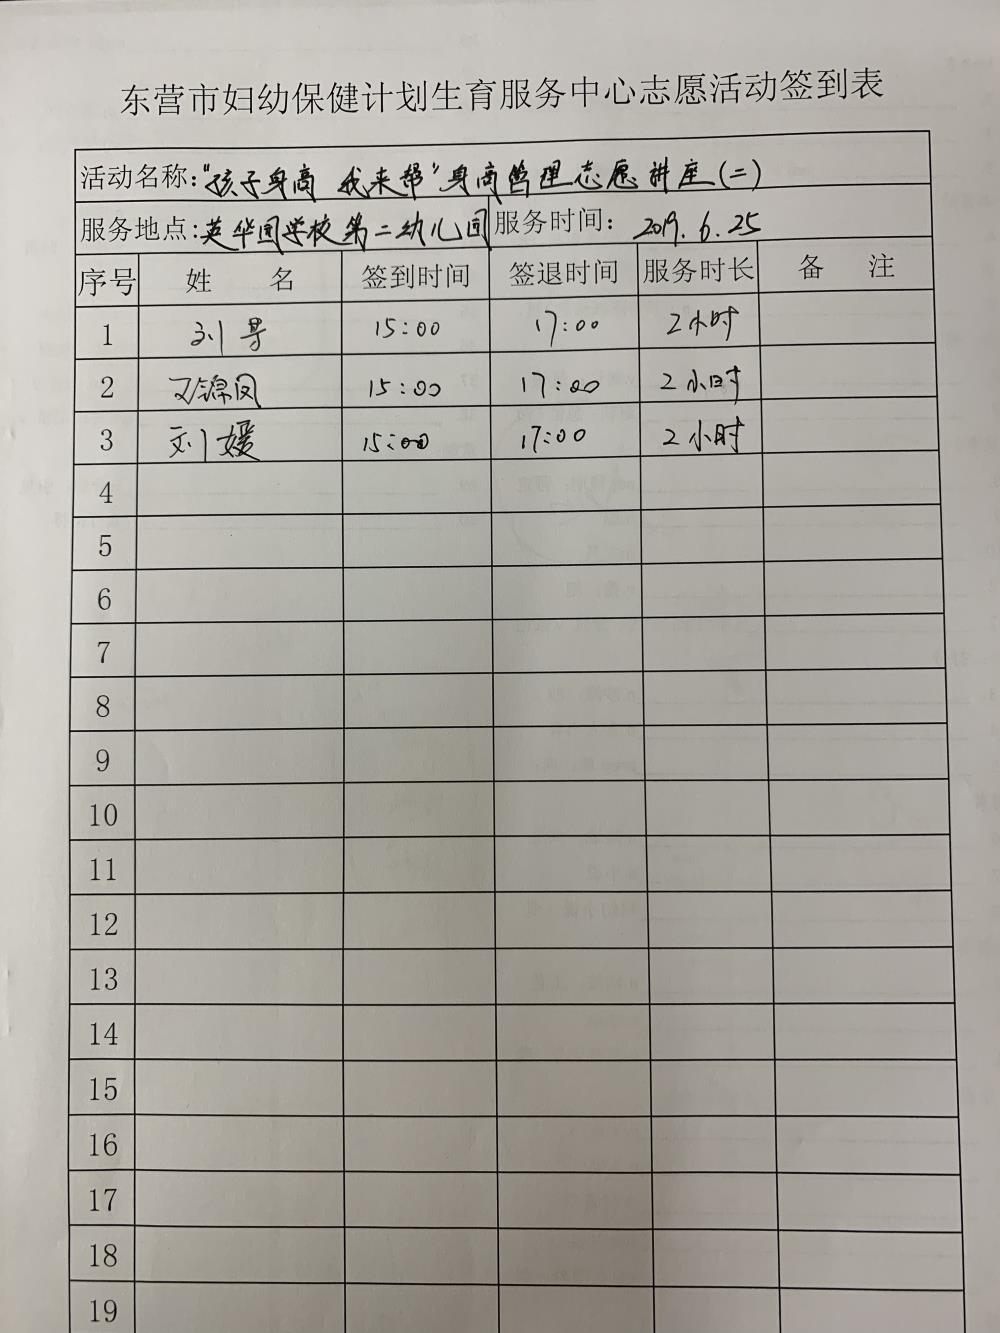 东营市妇幼保健计划生育服务中心志愿活动签到表
活动名称:"孩子身高 我来帮"身高管理志愿讲座(二)
服务地点:英华园学校第二幼儿园 服务时间: 2019.6.25
序号 姓 名 签到时间 签退时间 服务时长 备 注
1 刘 15:00 17:00 2小时
2 锦凤 15:00 17:00 2小时
3 刘媛 15:00 17:00 2小时
4
5
6
7
8
9
10
11
12
13
14
15
16
17
18
19